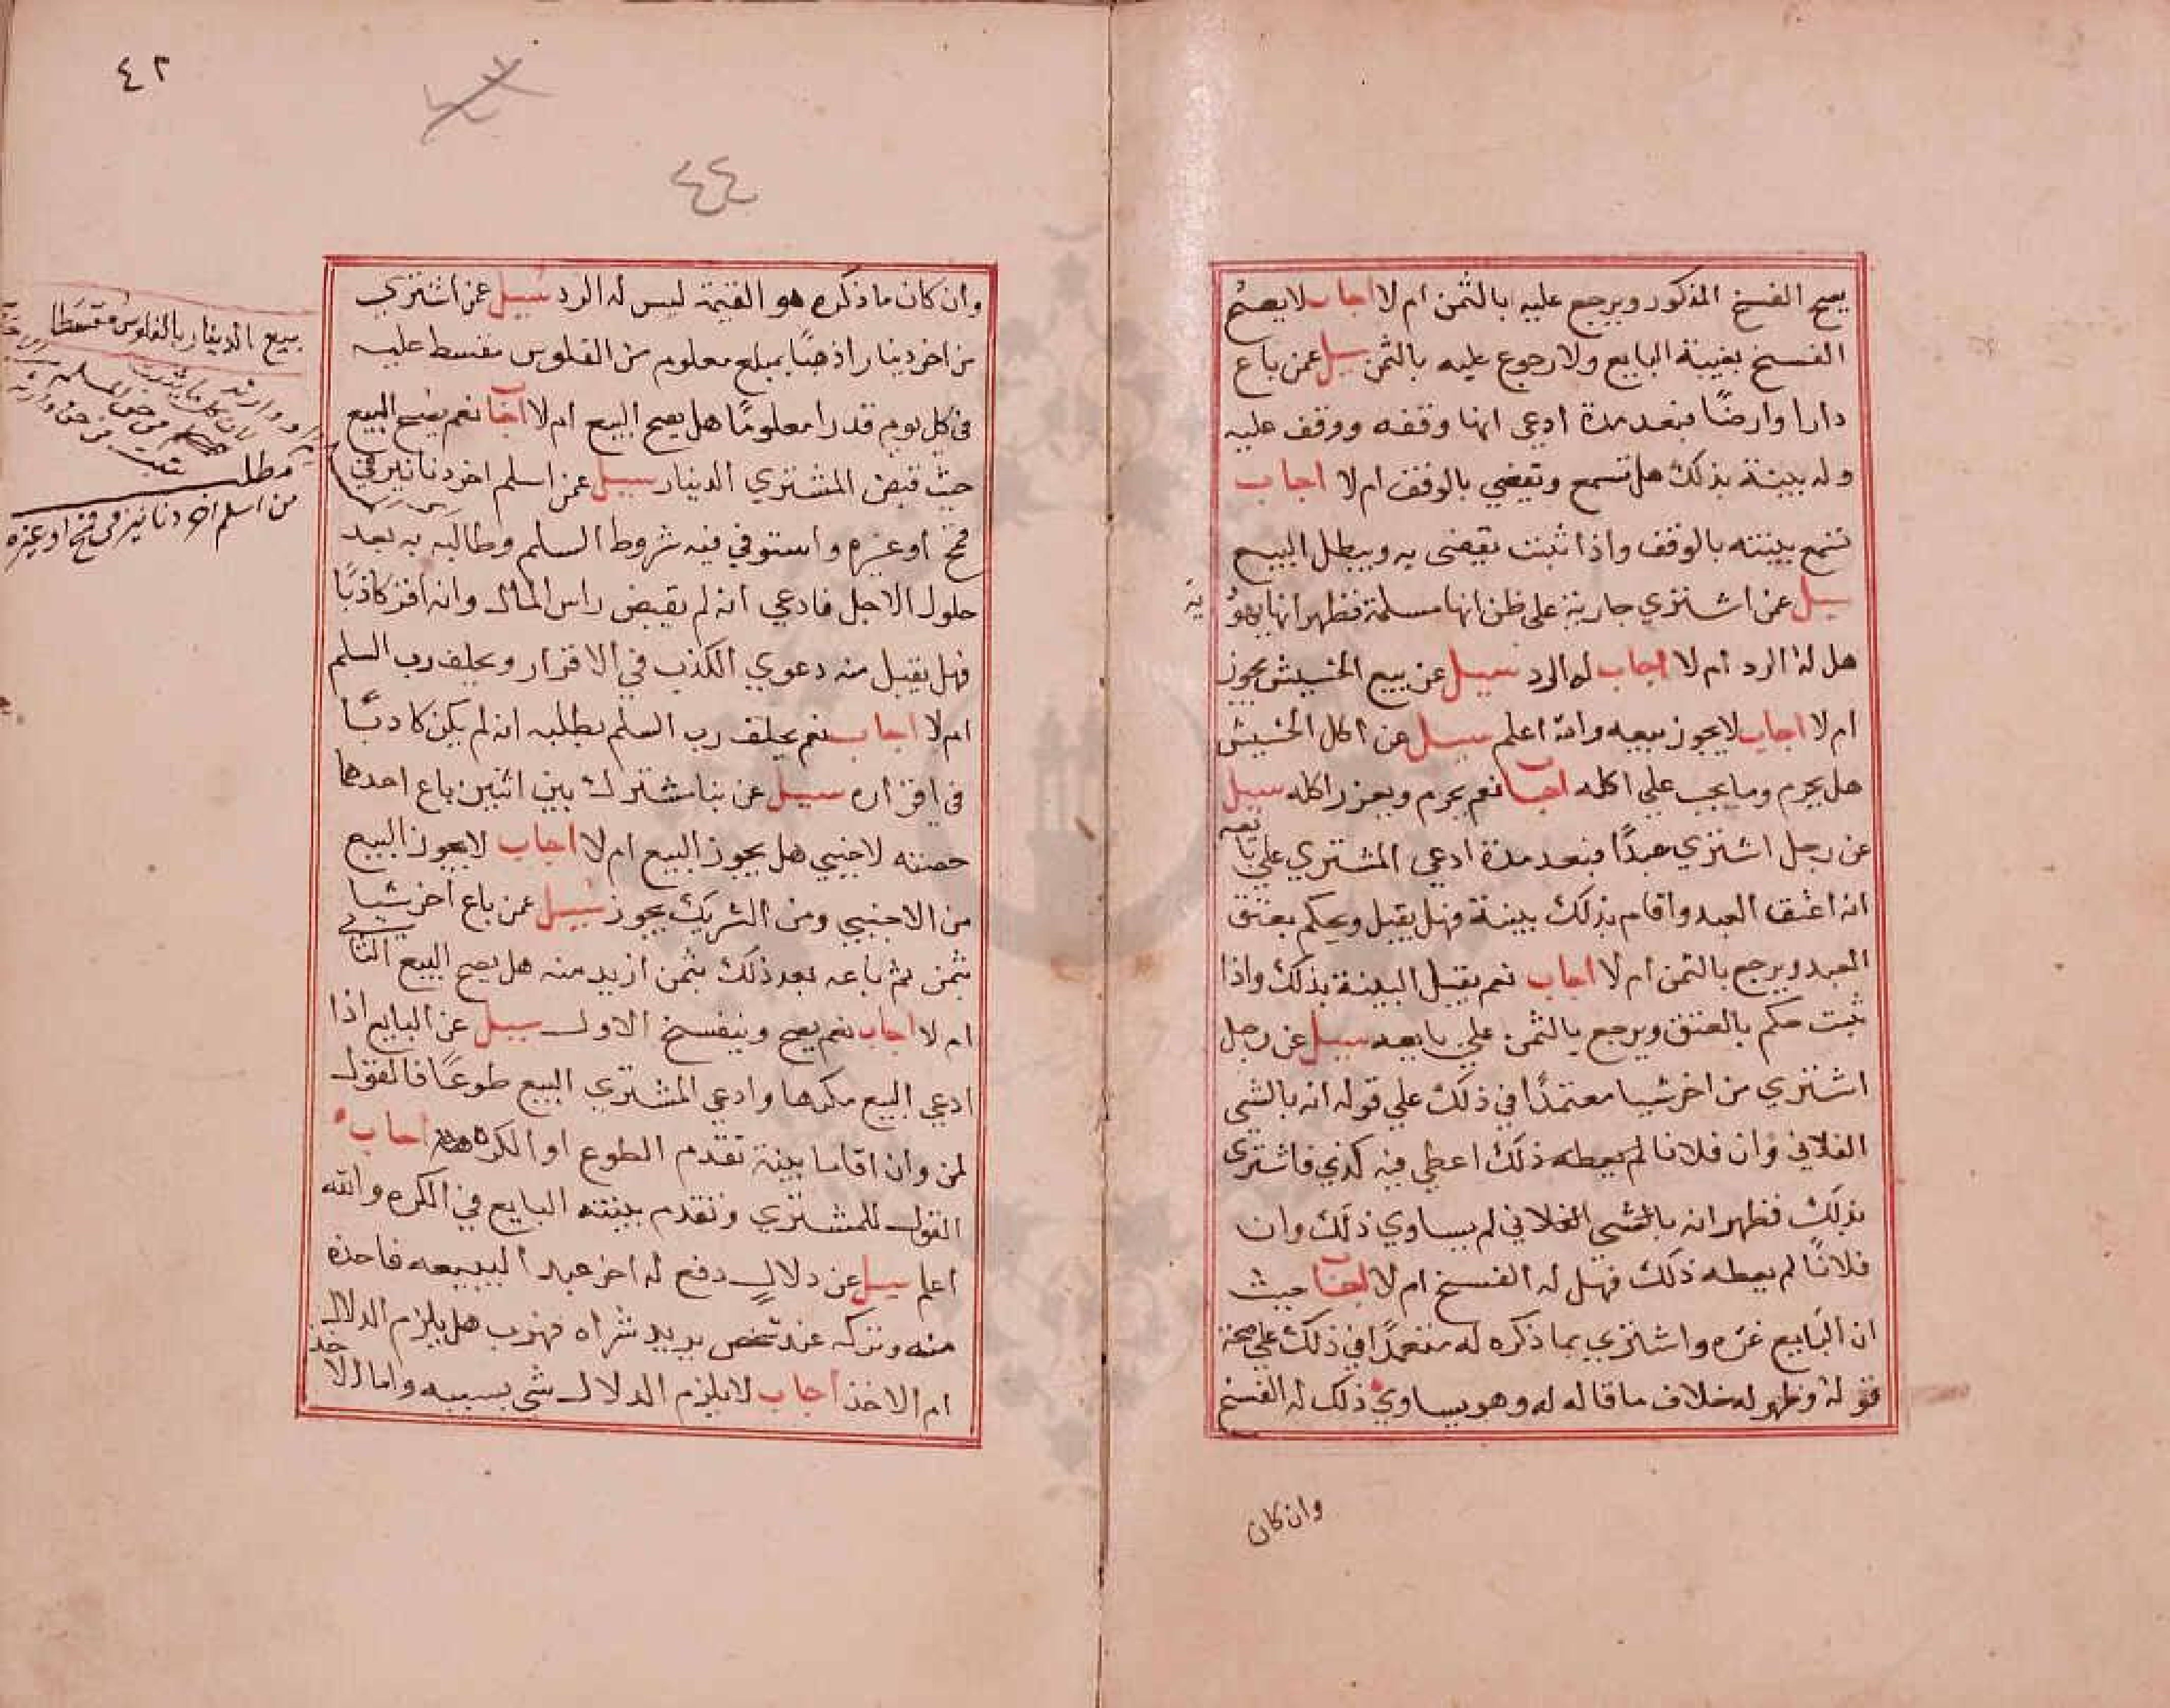 يصح الفسخ المذكور ويرجع عليه بالثمن ام لا اجاب لا يصح
الفسخ بغيبة البايع ولا رجوع عليه بالثمن سيل عمن باع
دارا وارضًا فبعد مدة ادعى انها وقفه ووقف عليه
وله بينة بذلك هل تسمع وتقضي بالوقف ام لا اجاب
تسمع بينته بالوقف واذا ثبت يقضى به ويبطل البيع
سيل عمن اشتري جارية على ظن انها مسلمة فظهر انها يهو
دية
هل له الرد ام لا اجاب له الرد سيل عن بيع الحشيش يجوز
ام لا اجاب لا يجوز بيعه والله اعلم سيل عن اكل الحشيش
هل يحرم وما يجب علي اكله اجاب نعم يحرم ويعزر اكله سيل
عن رجل اشتري عبدًا فبعد مدة ادعي المشتري علي بايعه
انه اعتق العبد واقام بذلك بينة فهل يقبل ويحكم بعتق
العبد ويرجع بالثمن ام لا اجاب نعم يقبل البينة بذلك واذا
ثبت حكم بالعتق ويرجع بالثمن علي بايعه سيل عن رجل
اشتري من اخر شيا معتمدًا في ذلك علي قوله انه بالشي
الفلاني وان فلانا لم يعطه ذلك اعطي فيه كذي فاشتري
بذلك فظهر انه بالشي الفلاني لم يساوي ذلك وان
فلانًا لم يعطه ذلك فهل له الفسخ ام لا اجاب حيث
ان البايع غره واشتري بما ذكره له معتمدًا في ذلك علي صحة
قوله وظهر له خلاف ما قاله له وهو يساوي ذلك له الفسخ
وان كان
٤٢
٤٤
وان كان ما ذكره هو القيمة ليس له الرد سيل عمن اشتري
من اخر دينارا ذهبًا بمبلغ معلوم من الفلوس مقسط عليه
في كل يوم قدرا معلومًا هل يصح البيع ام لا اجاب نعم يصح البيع
حيث قبض المشتري الدينار سيل عمن اسلم اخر دنانير في
قمح او غيره واستوفي فيه شروط السلم وطالبه به بعد
حلول الاجل فادعي انه لم يقبض راس المال وانه اقر كاذبًا
فهل يقبل منه دعوي الكذب في الاقرار ويحلف رب السلم
ام لا اجاب نعم يحلف رب السلم بطلبه انه لم يكن كاذبًا
في اقراره سيل عن بنا مشترك بين اثنين باع احدهما
حصته لاجنبي هل يجوز البيع ام لا اجاب لا يجوز البيع
من الاجنبي ومن الشريك يجوز سيل عمن باع اخر شيا
بثمن ثم باعه بعد ذلك بثمن ازيد منه هل يصح البيع الثاني
ام لا اجاب نعم يصح وينفسخ الاول سيل عن البايع اذا
ادعي البيع مكرها وادعي المشتري البيع طوعًا فالقول
لمن وان اقاما بينة تقدم الطوع او الكره اجاب
القول للمشتري وتقدم بينته البايع في الكره والله
اعلم سيل عن دلال دفع له اخر عبدا ليبيعه فاخذه
منه وتركه عند شخص يريد شراه فهرب هل يلزم الدلال
ام الاخذ اجاب لا يلزم الدلال شي بسببه واما الاخذ
بيع الدينار بالفلوس مقسطا
مطلب
من اسلم اخر دنانير في قمح او غيره